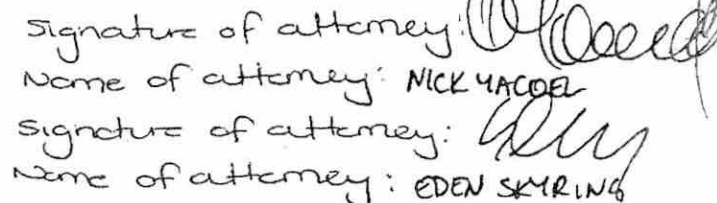 Signature of attorney:
Name of attorney: NICK YACOEL
Signature of attorney:
Name of attorney: EDEN SKYRING